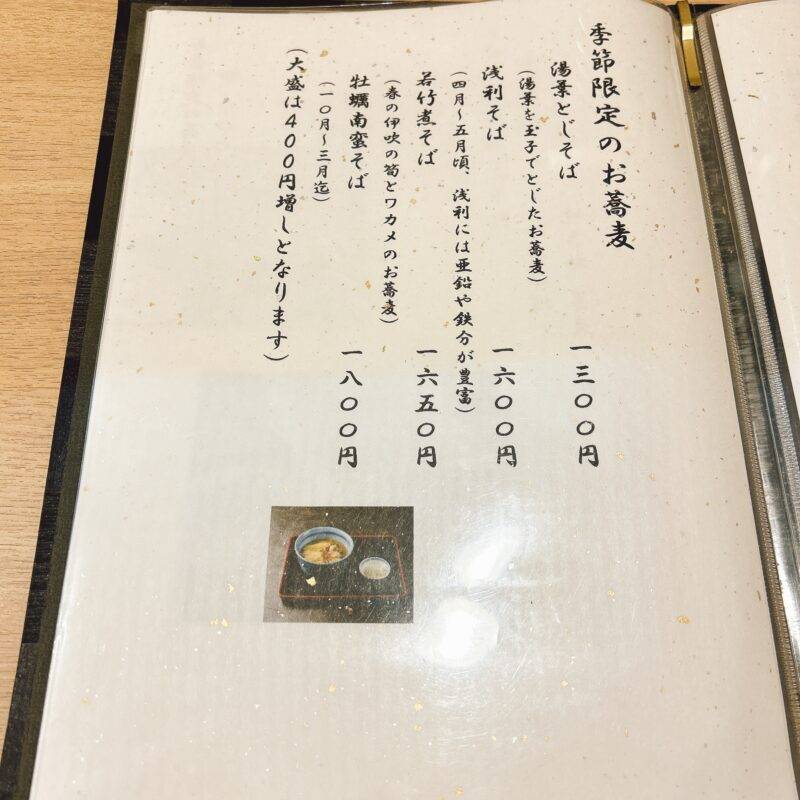 季節限定のお蕎麦
湯葉とじそば 一三〇〇円
(湯葉を玉子でとじたお蕎麦)
浅利そば 一六〇〇円
(四月～五月頃、浅利には亜鉛や鉄分が豊富)
若竹煮そば 一六五〇円
(春の伊吹の筍とワカメのお蕎麦)
牡蠣南蛮そば 一八〇〇円
(一〇月～三月迄)
(大盛は400円増しとなります)